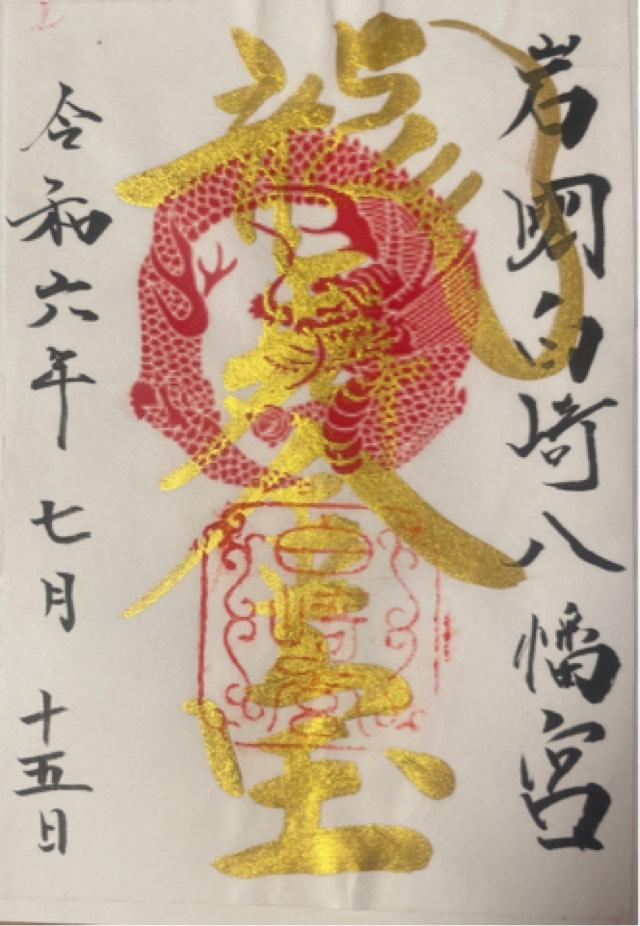 岩國白崎八幡宮
龍 宝
令和六年 七月 十五日